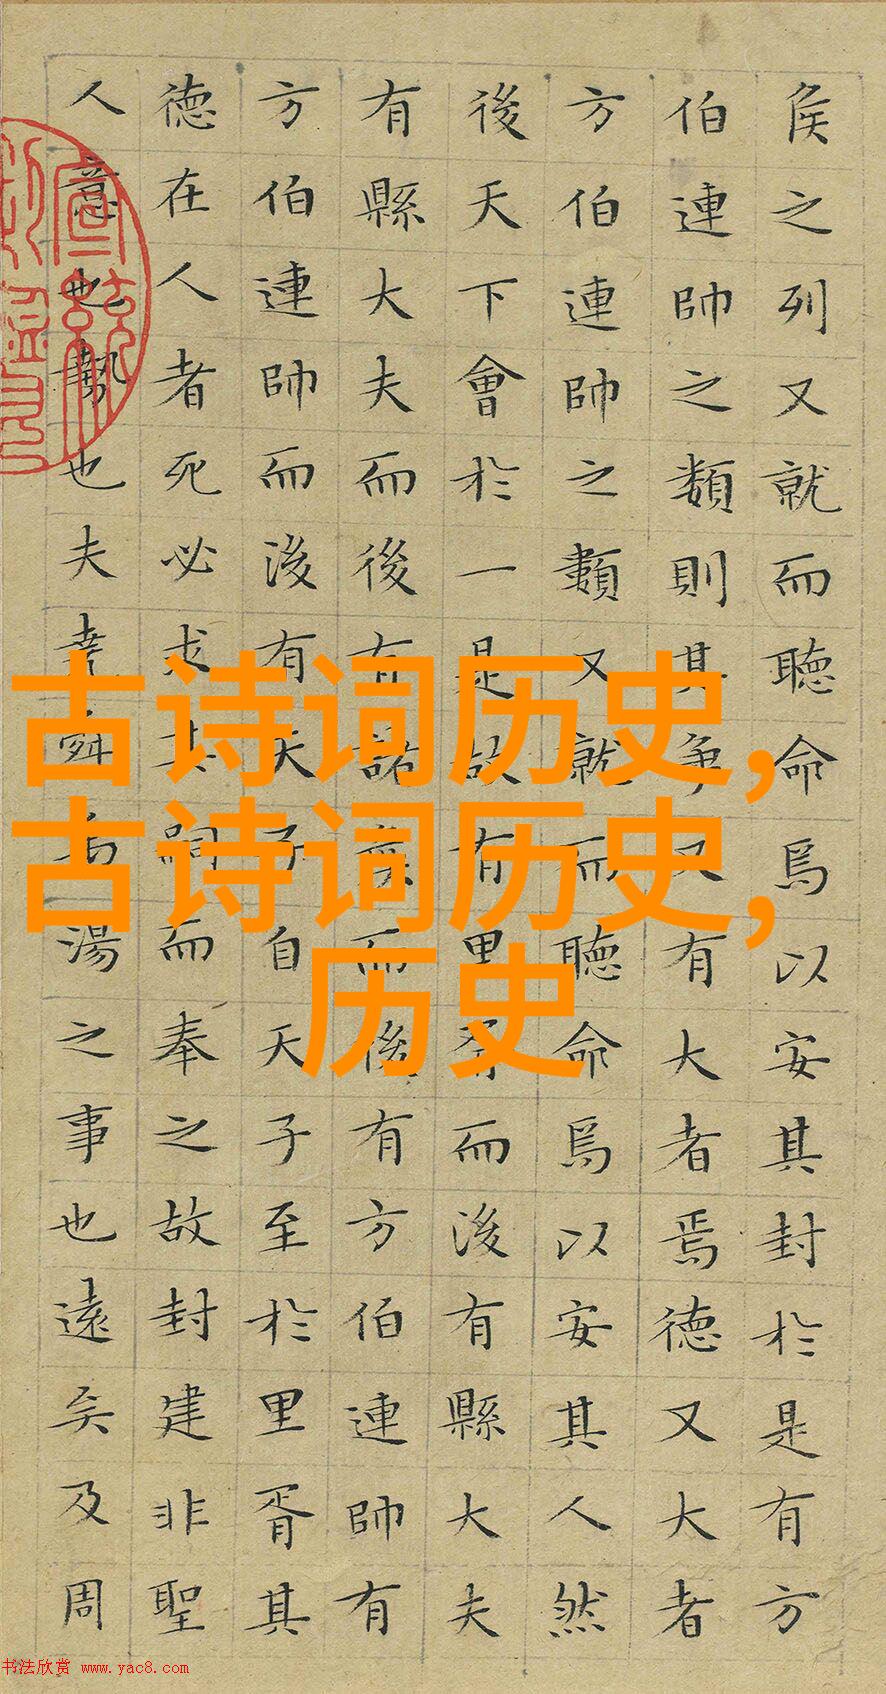 侯之列又就而聽命焉以安其封於是有方
伯連帥之類則其爭又有大者焉德又大者
方伯連帥之類又就而聽命焉以安其人然
後天下會於一是故有里胥而後有縣大夫
有縣大夫而後有諸侯而後有方伯連帥有
方伯連帥而後有天子自天子至於里胥其
德在人者死必求其嗣而奉之故封建非聖
人意也勢也夫堯舜禹湯之事也遠矣及周
古诗词历史,
古诗词历史,
历史
书法欣赏 www.yac8.com